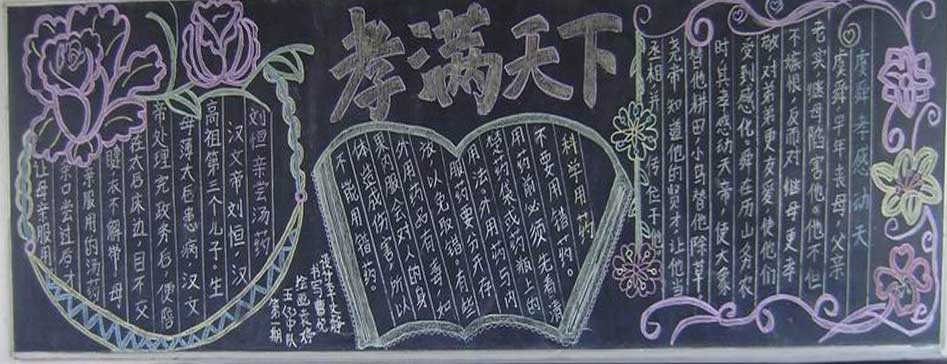 孝满天下
虞舜孝感动天
虞舜早年丧母，父亲
老实，继母陷害他。他不但
不嫉恨，反而对继母更孝
敬，对弟弟更友爱，使他们
受到感化。舜在历山务农
时，其孝感动天帝，使大象
替他耕田，小鸟替他除草。
尧帝知道他的贤才，让他当
丞相，并传位于他
科学用药
不要用错药。
用药前必须先看清
楚药袋或药瓶上的
用法，外用药与内
服药要分开存
放，以免取错。有些
外用药品有毒，如
果内服会对人的身
体造成伤害，所以
不能用错药。
刘恒亲尝汤药
汉文帝刘恒，汉
高祖第三个儿子。生
母薄太后患病，汉文
帝处理完政务后，便陪
在太后床边，目不交
睫，衣不解带。母
亲服用的汤药
亲口尝过后才
让母亲服用
书写
绘画
中队
期